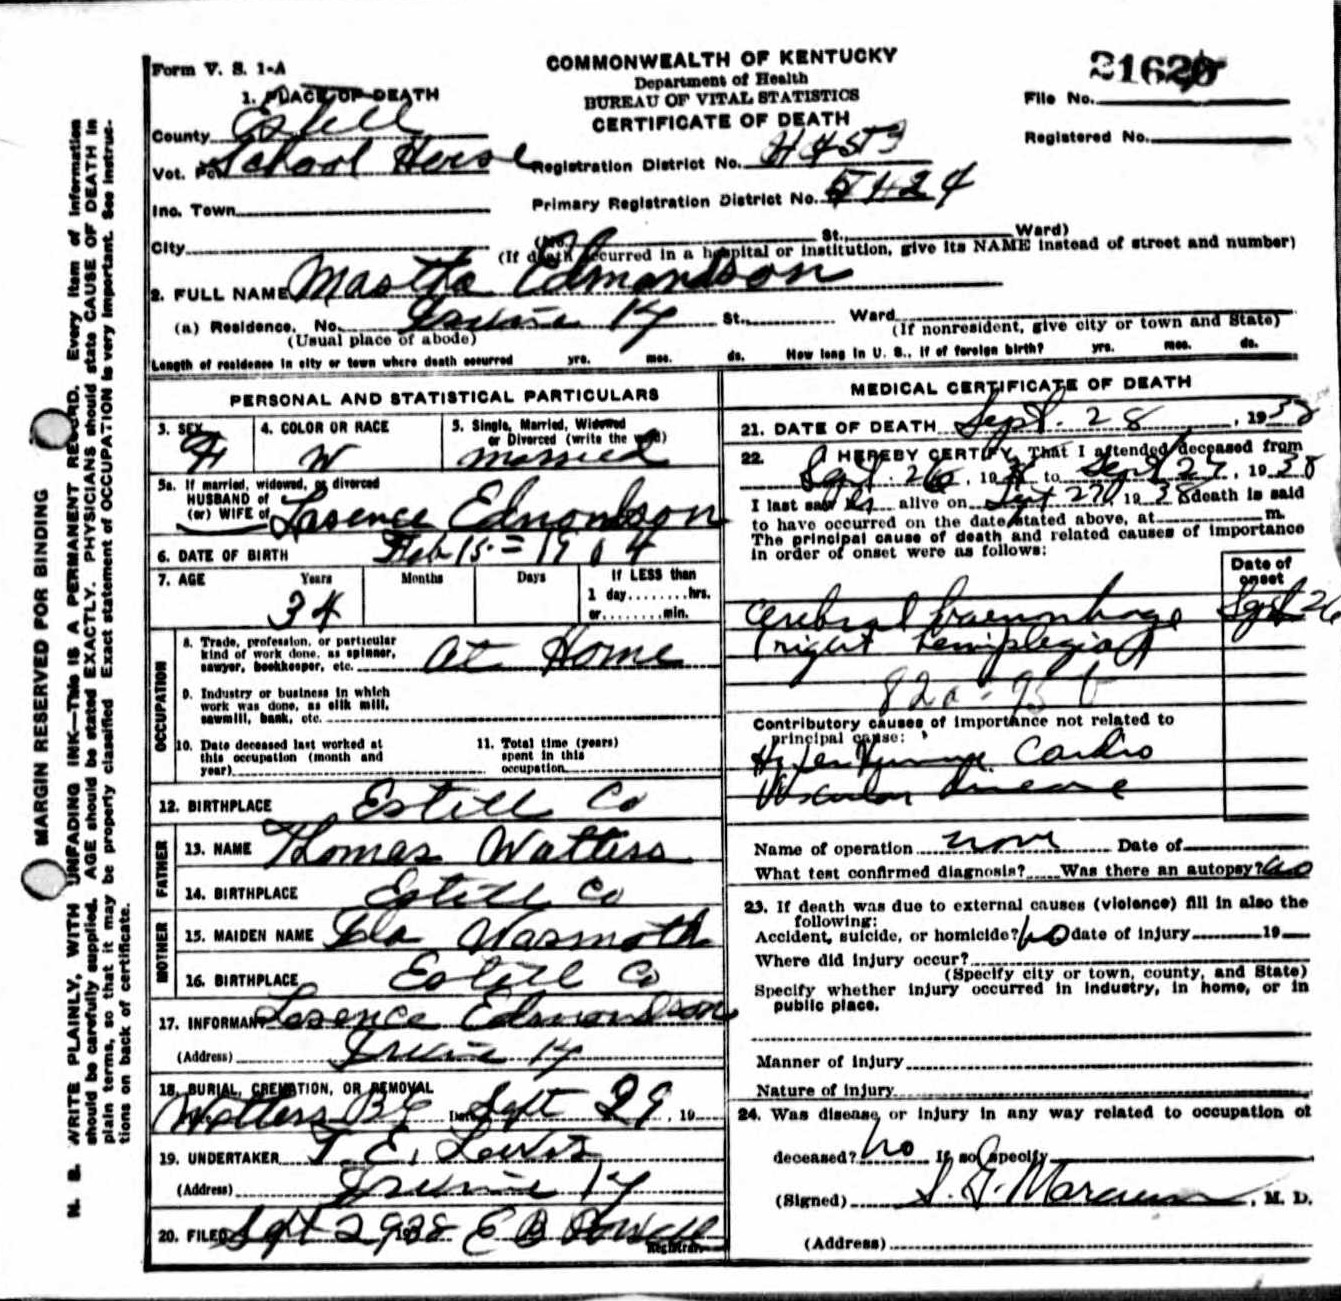 Form V. S. 1-A
COMMONWEALTH OF KENTUCKY
Department of Health
BUREAU OF VITAL STATISTICS
CERTIFICATE OF DEATH
File No.
Registered No.
1. PLACE OF DEATH
County Estill
Vot. School House
Registration District No.
Inc. Town
Primary Registration District No.
City
(No. St., Ward)
(If death occurred in a hospital or institution, give its NAME instead of street and number)
2. FULL NAME Edmondson
(a) Residence. No. Irvine Ky St., Ward
(Usual place of abode)
(If nonresident, give city or town and State)
Length of residence in city or town where death occurred yrs. mos. ds. How long in U. S., if of foreign birth? yrs. mos. ds.
PERSONAL AND STATISTICAL PARTICULARS
3. SEX F
4. COLOR OR RACE W
5. Single, Married, Widowed or Divorced (write the word) Married
5a. If married, widowed, or divorced
HUSBAND of
(or) WIFE of Larence Edmondson
6. DATE OF BIRTH Feb 15 = 1904
7. AGE Years Months Days If LESS than
34 1 day........hrs.
or........min.
OCCUPATION
8. Trade, profession, or particular
kind of work done, as spinner,
sawyer, bookkeeper, etc. At Home
9. Industry or business in which
work was done, as silk mill,
sawmill, bank, etc.
10. Date deceased last worked at
this occupation (month and
year)
11. Total time (years)
spent in this
occupation
12. BIRTHPLACE Estill Co
FATHER
13. NAME Thomas Watters
14. BIRTHPLACE Estill Co
MOTHER
15. MAIDEN NAME Wasmoth
16. BIRTHPLACE Estill Co
17. INFORMANT Larence Edmondson
(Address) Irvine Ky
18. BURIAL, CREMATION, OR REMOVAL
Watters Date Sept 29, 19
19. UNDERTAKER T. E. Lewis
(Address) Irvine Ky
20. FILED Sept 29 1938 E B Powell
Registrar.
MEDICAL CERTIFICATE OF DEATH
21. DATE OF DEATH Sept. 28, 1938
22. I HEREBY CERTIFY, That I attended deceased from
Sept. 26, 1938 to Sept 27, 1938
I last saw her alive on Sept 27, 1938 death is said
to have occurred on the date stated above, at m.
The principal cause of death and related causes of importance
in order of onset were as follows:
Date of
onset
Cerebral haemorrhage Sept 26
right hemiplegia
82a-95b
Contributory causes of importance not related to
principal cause:
Cardio
Vascular disease
Name of operation none Date of
What test confirmed diagnosis? Was there an autopsy? no
23. If death was due to external causes (violence) fill in also the
following:
Accident, suicide, or homicide? no date of injury 19
Where did injury occur?
(Specify city or town, county, and State)
Specify whether injury occurred in industry, in home, or in
public place.
Manner of injury
Nature of injury
24. Was disease, or injury in any way related to occupation of
deceased? no If so, specify
(Signed) S. G. Marcum, M. D.
(Address)
MARGIN RESERVED FOR BINDING
N. B. WRITE PLAINLY, WITH UNFADING INK—THIS IS A PERMANENT RECORD. Every item of information
should be carefully supplied. AGE should be stated EXACTLY. PHYSICIANS should state CAUSE OF DEATH in
plain terms, so that it may be properly classified. Exact statement of OCCUPATION is very important. See instruc-
tions on back of certificate.